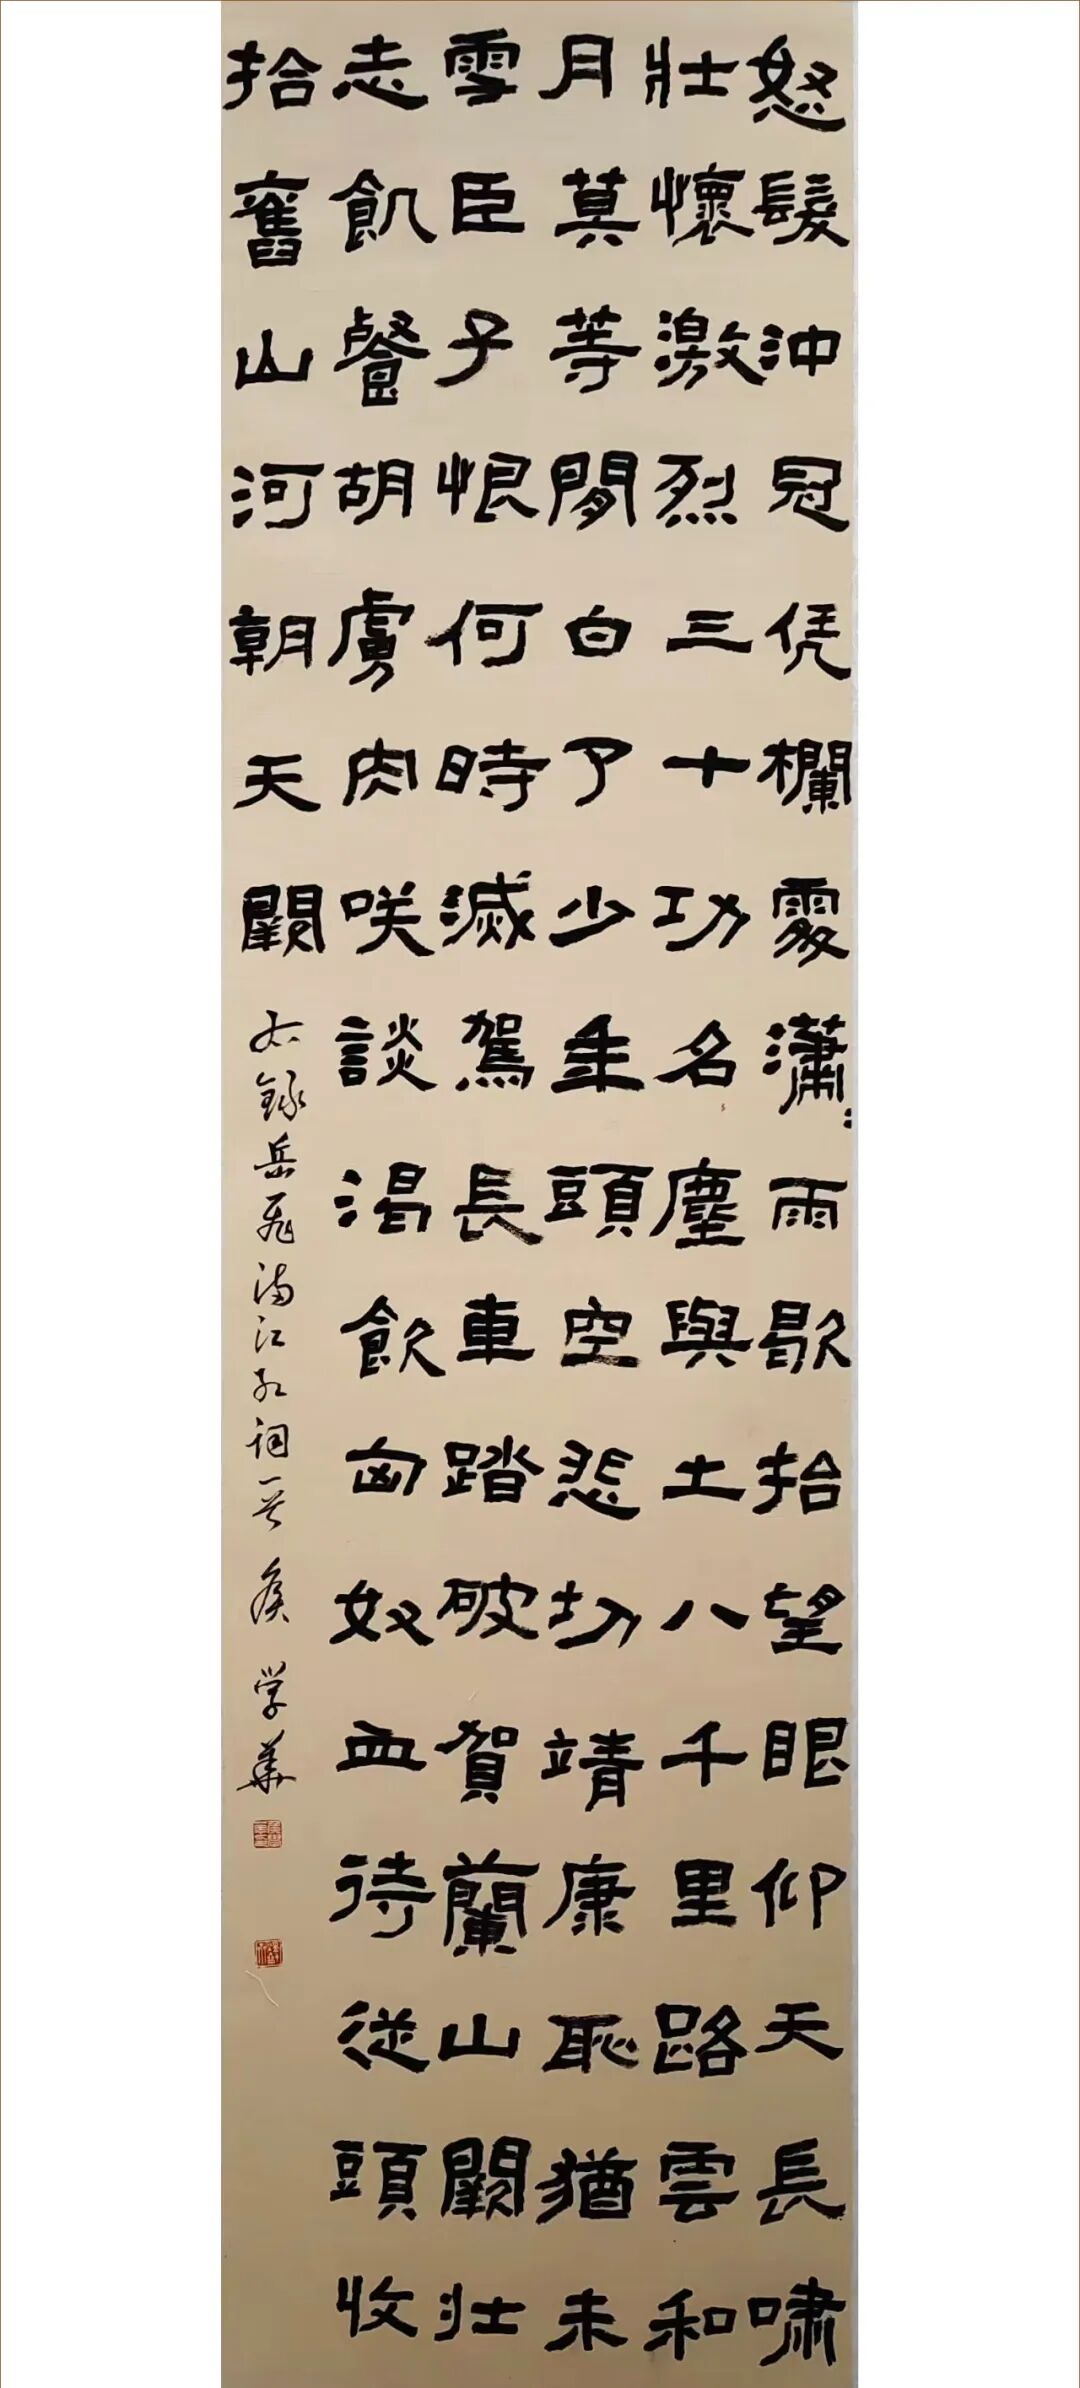 怒髮沖冠凭欄處瀟〻雨歇抬望眼仰天長嘯
壯懷激烈三十功名塵與土八千里路雲和
月莫等閒白了少年頭空悲切靖康恥猶未
雪臣子恨何時滅駕長車踏破賀蘭山闕壯
志飢餐胡虜肉咲談渴飲匈奴血待從頭收
拾舊山河朝天闕
右錄岳飛滿江紅詞一首 侯学華